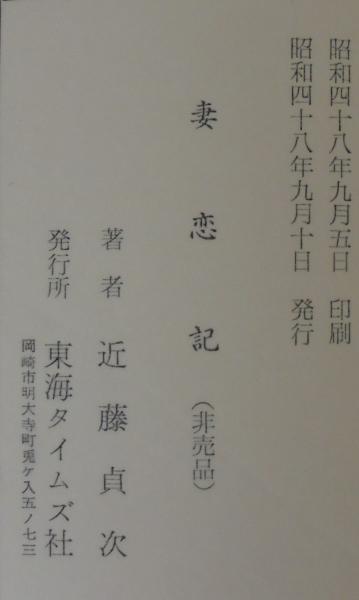 昭和四十八年九月五日 印刷
昭和四十八年九月十日 発行
妻恋記(非売品)
著者 近藤貞次
発行所 東海タイムズ社
岡崎市明大寺町兎ケ入五ノ七三